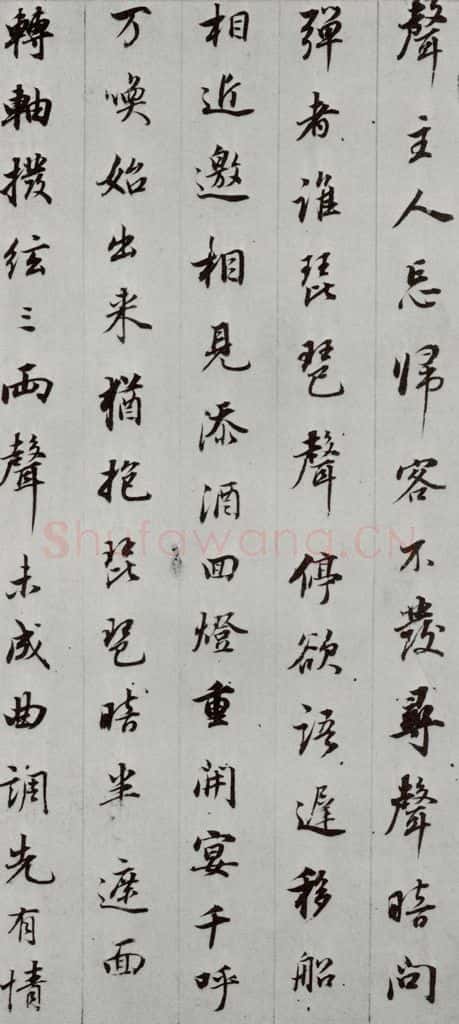 聲主人忘歸客不發尋聲暗問
彈者誰琵琶聲停欲語遲移船
相近邀相見添酒回燈重開宴千呼
万喚始出来猶抱琵琶暗半遮面
轉軸撥絃三兩聲未成曲調先有情
Shufawang.CN